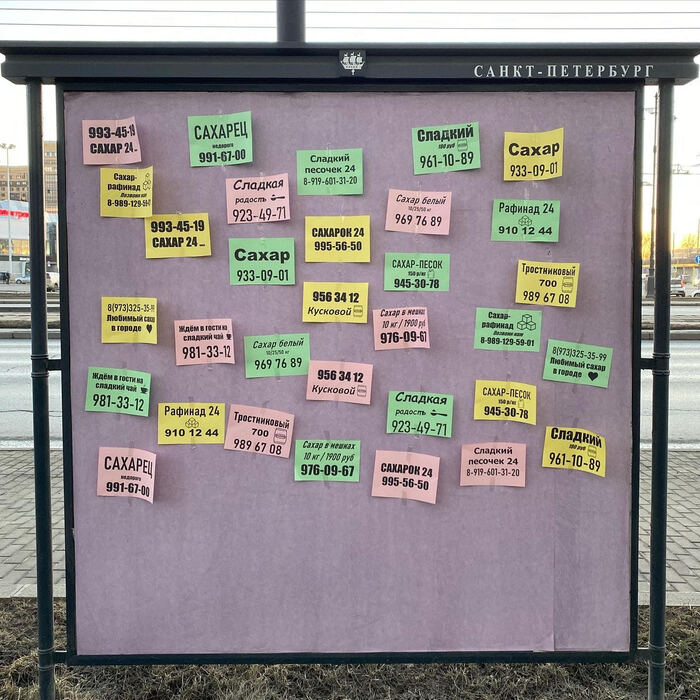 САНКТ-ПЕТЕРБУРГ
993-45-19
САХАР 24
САХАРЕЦ
недорого
991-67-00
Сладкий
песочек 24
8-919-601-31-20
Сладкий
100 руб
961-10-89
Сахар
933-09-01
Сахар-
рафинад
Позвони нам
8-989-129-59-01
Сладкая
радость
923-49-71
Сахар белый
10/25/50 кг
969 76 89
Рафинад 24
910 12 44
993-45-19
САХАР 24
Сахар
933-09-01
САХАРОК 24
995-56-50
САХАР-ПЕСОК
150 р/кг
945-30-78
Тростниковый
700
989 67 08
8(973)325-35-99
Любимый сахар
в городе
Ждём в гости на
сладкий чай
981-33-12
956 34 12
Кусковой
Сахар в мешках
10 кг / 1900 руб
976-09-67
Сахар-
рафинад
Позвони нам
8-989-129-59-01
8(973)325-35-99
Любимый сахар
в городе
Сахар белый
10/25/50 кг
969 76 89
Ждём в гости на
сладкий чай
981-33-12
956 34 12
Кусковой
Сладкая
радость
923-49-71
САХАР-ПЕСОК
150 р/кг
945-30-78
Рафинад 24
910 12 44
Тростниковый
700
989 67 08
Сахар в мешках
10 кг / 1900 руб
976-09-67
САХАРЕЦ
недорого
991-67-00
САХАРОК 24
995-56-50
Сладкий
песочек 24
8-919-601-31-20
Сладкий
100 руб
961-10-89